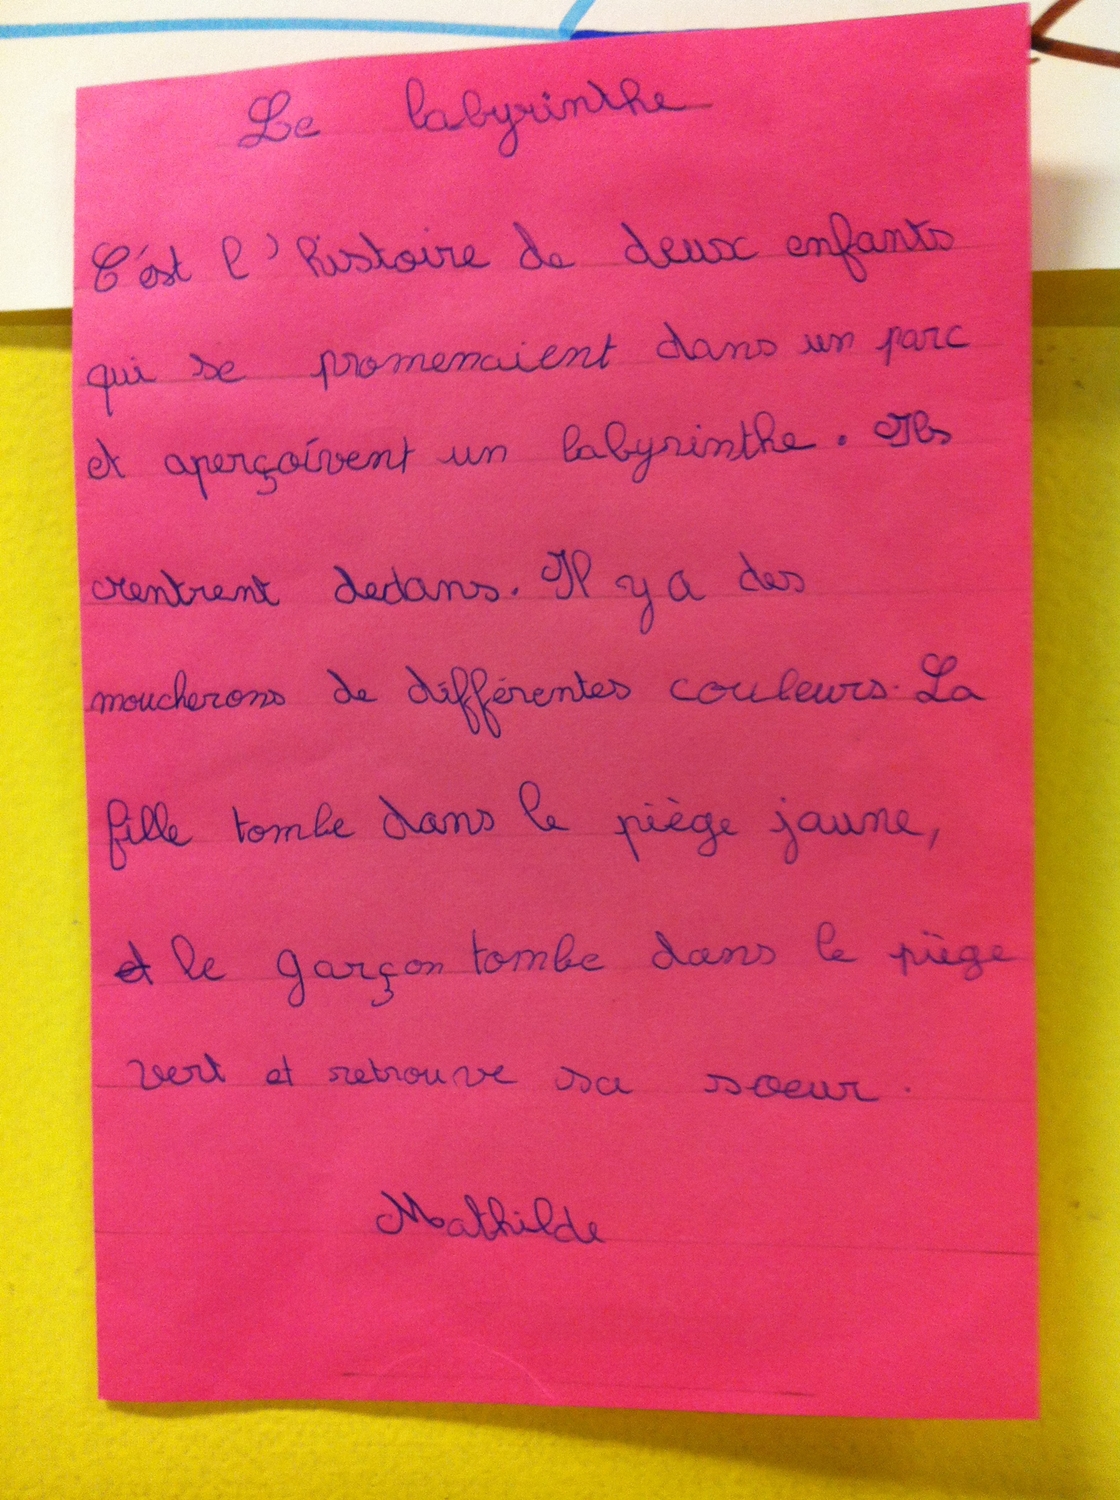 Le labyrinthe
C'est l'histoire de deux enfants
qui se promenaient dans un parc
et aperçoivent un labyrinthe. Ils
rentrent dedans. Il y a des
moucherons de différentes couleurs. La
fille tombe dans le piège jaune,
et le garçon tombe dans le piège
vert et retrouve sa soeur.
Mathilde